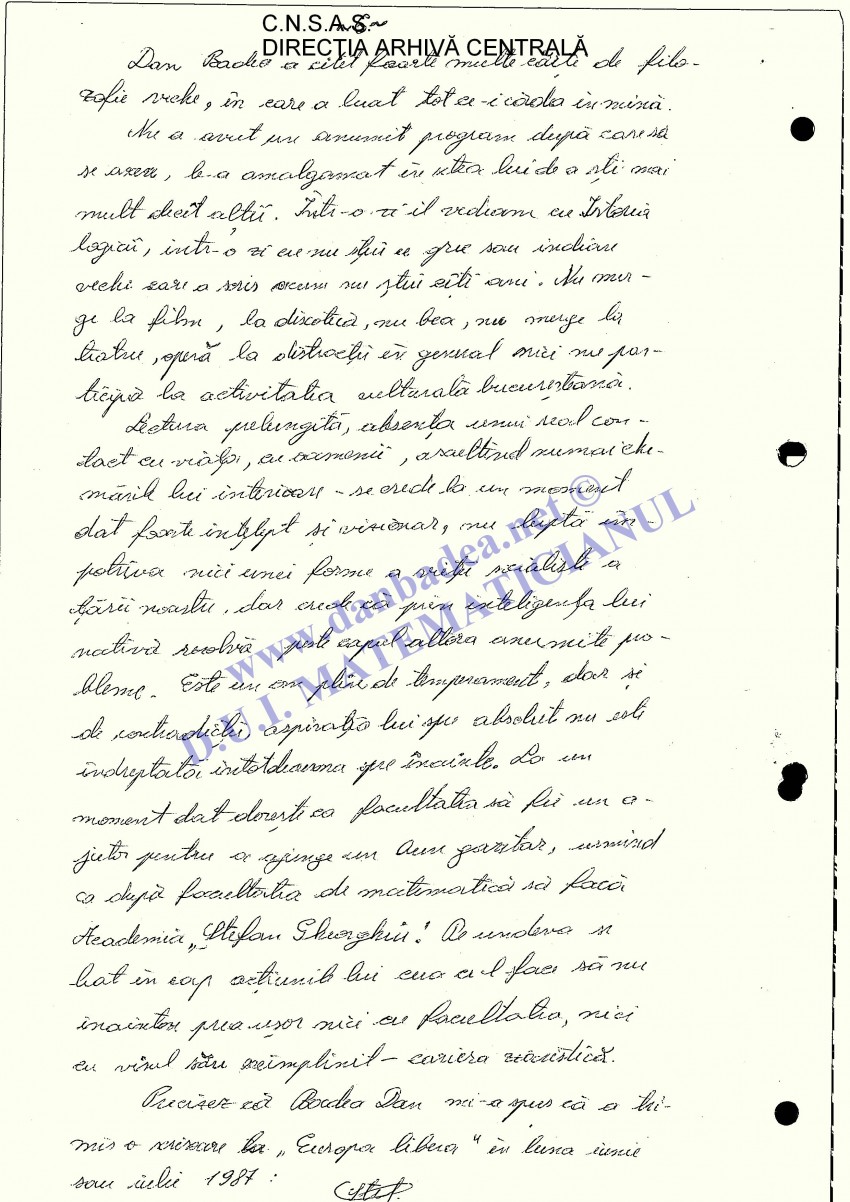 C.N.S.A.S.
DIRECȚIA ARHIVĂ CENTRALĂ
Dan Badea a citit foarte multe cărți de filo-
zofie veche, în care a luat tot ce-i cădea în mînă.
Nu a avut un anumit program după care să
se axeze, le-a amalgamat în ideea lui de a ști mai
mult decît alții. Într-o zi îl vedeam cu Istoria
logicii, într-o zi cu nu știu ce grec sau indian
vechi care a scris acum nu știu cîți ani. Nu mer-
ge la film, la discotecă, nu bea, nu merge la
teatru, operă la distracții în general nici nu par-
ticipă la activitatea culturală bucureșteană.
Lectura prelungită, absența unui real con-
tact cu viața, cu oamenii, ascultînd numai che-
mările lui interioare - se crede la un moment
dat foarte înțelept și vizionar, nu luptă îm-
potriva nici unei forme a vieții socialiste a
țării noastre, dar crede că prin inteligența lui
nativă rezolvă peste capul altora anumite pro-
bleme. Este un om plin de temperament, dar și
de contradicții, aspirația lui spre absolut nu este
îndreptată întotdeauna spre înainte. La un
moment dat dorește ca facultatea să fie un a-
jutor pentru a ajunge un bun gazetar, urmînd
ca după facultatea de matematică să facă
Academia „Ștefan Gheorghiu". Pe undeva se
bat în cap acțiunile lui ceea ce-l face să nu
înainteze prea ușor nici cu facultatea, nici
cu visul său neîmplinit - cariera ziaristică.
Precizez că Badea Dan mi-a spus că a tri-
mis o scrisoare la „Europa liberă" în luna iunie
sau iulie 1987:
www.danbadea.net ©
D.U.I. MATEMATICIANUL